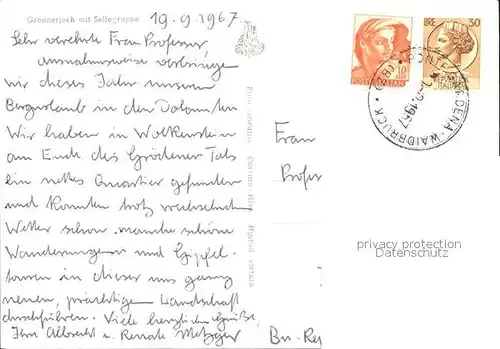 Grödnerjoch mit Sellagruppe
19.9.1967.
Sehr verehrte Frau Professor,
ausnahmsweise verbringen
wir dieses Jahr unseren
Bergurlaub in den Dolomiten
Wir haben in Wolkenstein
am Ende des Grödener Tals
ein nettes Quartier gefunden
und konnten trotz wechselndem
Wetter schon manche schöne
Wanderungen und Gipfel-
touren in dieser uns ganz
neuen, prächtigen Landschaft
durchführen. Viele herzliche Grüße,
Ihre Albrecht u. Renate Metzger
Frau
Profes
Bn-Rey
10
POSTE ITALIANE
LIRE 30
PONTE GARDENA-WAIDBRUCK
(BZ)
-9.1967
privacy protection
Datenschutz